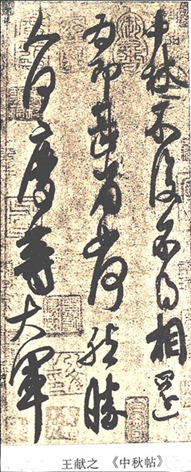 中秋不復不得相還
為即甚省如何然勝
人何慶等大軍
王献之 《中秋帖》